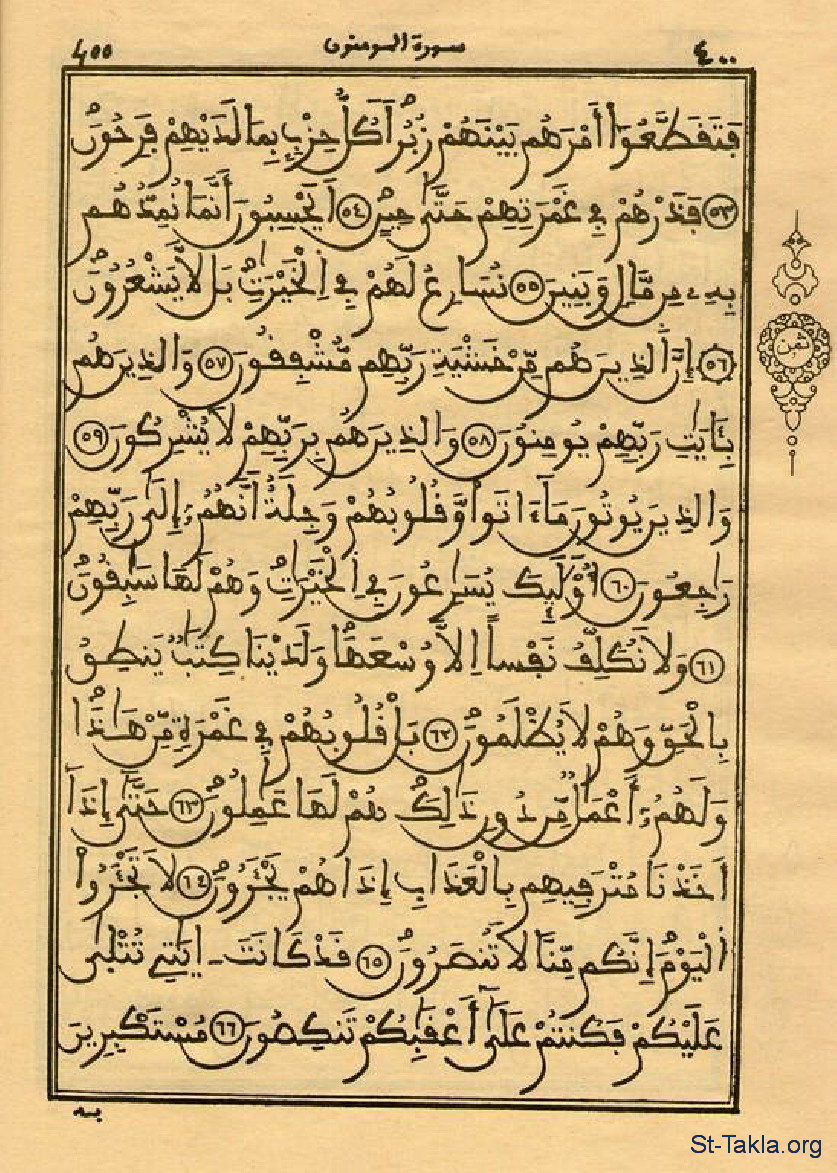 ٤٠٠ سورة المومنون 400
فَتَقَطَّعُوٓاْ أَمْرَهُم بَيْنَهُمْ زُبُراٗ كُلُّ حِزْبِۢ بِمَا لَدَيْهِمْ فَرِحُونَۖ
٥٣ فَذَرْهُمْ فِے غَمْرَتِهِمْ حَتَّىٰ حِينٍۖ ٥٤ اَيَحْسِبُونَ أَنَّمَا نُمِدُّهُم
بِهِۦ مِن مَّالٖ وَبَنِينَ ٥٥ نُسَارِعُ لَهُمْ فِے اِ۬لْخَيْرَٰتِۖ بَل لَّا يَشْعُرُونَۖ
٥٦ إِنَّ اَ۬لذِينَ هُم مِّنْ خَشْيَةِ رَبِّهِم مُّشْفِقُونَ ٥٧ وَالذِينَ هُم
بِـَٔايَٰتِ رَبِّهِمْ يُومِنُونَ ٥٨ وَالذِينَ هُم بِرَبِّهِمْ لَا يُشْرِكُونَ ٥٩
وَالذِينَ يُوتُونَ مَآ ءَاتَواْ وَّقُلُوبُهُمْ وَجِلَةٌ أَنَّهُمُۥٓ إِلَىٰ رَبِّهِمْ
رَٰجِعُونَ ٦٠ أُوْلَٰٓئِكَ يُسَٰرِعُونَ فِے اِ۬لْخَيْرَٰتِ وَهُمْ لَهَا سَٰبِقُونَۖ
٦١ وَلَا نُكَلِّفُ نَفْساً اِلَّا وُسْعَهَاۖ وَلَدَيْنَا كِتَٰبٞ يَنطِقُ
بِالْحَقِّ وَهُمْ لَا يُظْلَمُونَۖ ٦٢ بَلْ قُلُوبُهُمْ فِے غَمْرَةٖ مِّنْ هَٰذَاۖ
وَلَهُمُۥٓ أَعْمَٰلٞ مِّن دُونِ ذَٰلِكَ هُمْ لَهَا عَٰمِلُونَۖ ٦٣ حَتَّىٰٓ إِذَآ
أَخَذْنَا مُتْرَفِيهِم بِالْعَذَابِ إِذَا هُمْ يَجْـَٔرُونَۖ ٦٤ لَا تَجْـَٔرُواْ
اُ۬لْيَوْمَۖ إِنَّكُم مِّنَّا لَا تُنصَرُونَۖ ٦٥ قَدْ كَانَتَ ـ اٰيَٰتِے تُتْلَىٰ
عَلَيْكُمْ فَكُنتُمْ عَلَىٰٓ أَعْقَٰبِكُمْ تَنكِصُونَ ٦٦ مُسْتَكْبِرِينَ
ثمن
به
St-Takla.org